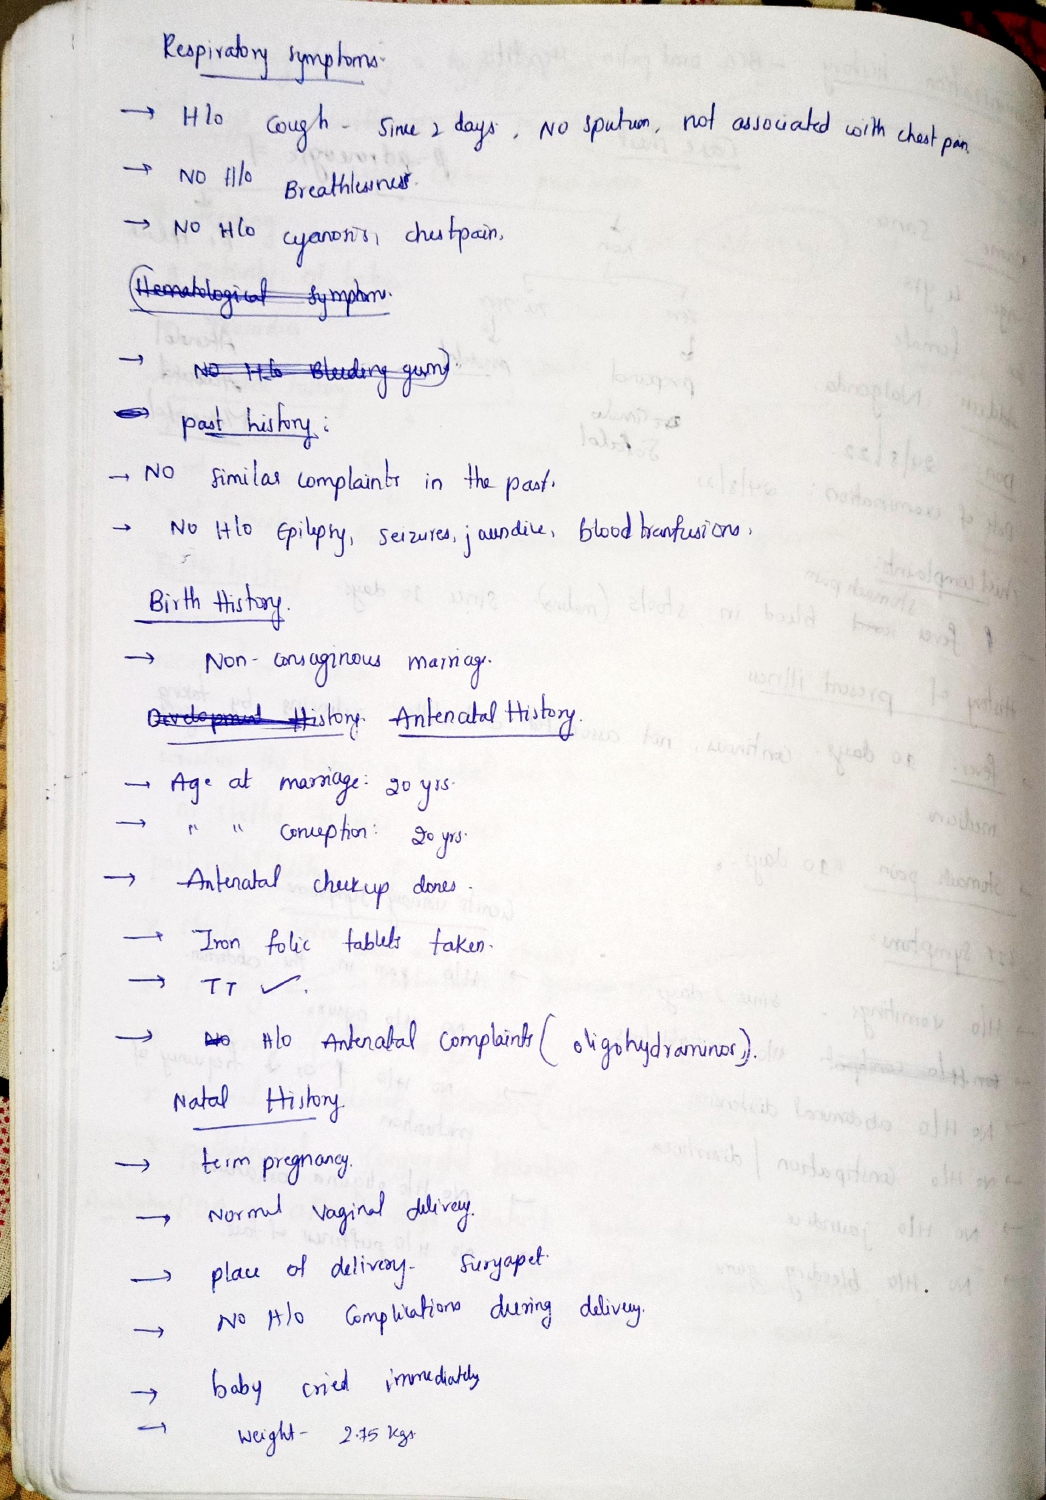 Respiratory symptoms-
→ H/o Cough - Since 2 days, NO Sputum, not associated with chest pain
→ NO H/o Breathlessness.
→ NO H/o cyanosis, chestpain,
(Hematological symptom.
→ NO H/o Bleeding gums)
past history:
→ NO similar complaints in the past.
→ NO H/o Epilepsy, seizures, jaundice, blood tranfusions,
Birth History.
→ Non-consaginous marriage.
Development History. Antenatal History.
→ Age at marriage: 20 yrs.
→ " " conception: 20 yrs.
→ Antenatal checkup dones.
→ Iron folic tablets taken.
→ TT ✓.
→ No H/o Antenatal Complaints (oligohydraminos).
Natal History.
→ term pregnancy.
→ Normal vaginal delivery.
→ place of delivery- Suryapet.
→ No H/o Complications during delivery.
→ baby cried immediately
→ Weight- 2.75 kgs